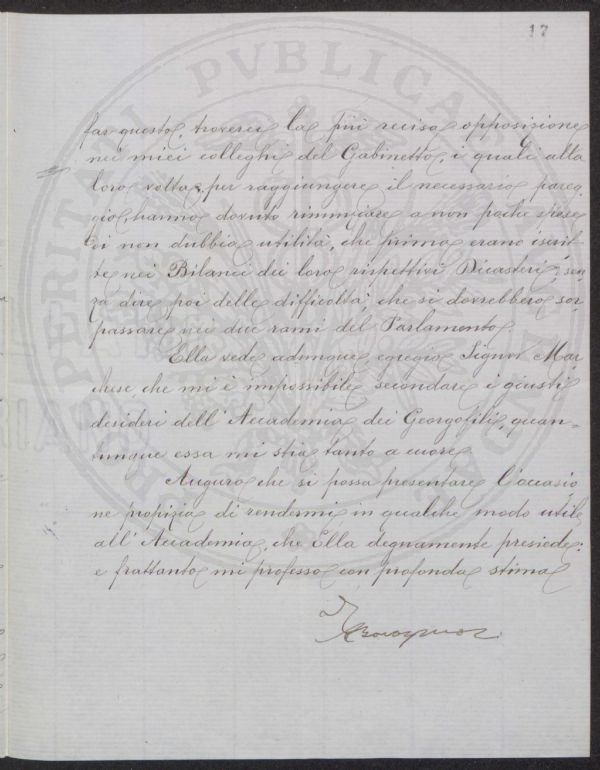 17
far questo, troverei la più recisa opposizione
nei miei colleghi del Gabinetto, i quali alla
loro volta, per raggiungere il necessario pareg-
gio, hanno dovuto rinunciare a non poche spese
di non dubbia utilità, che prima erano iscrit-
te nei Bilanci dei loro rispettivi Dicasteri; sen-
za dire poi delle difficoltà, che si dovrebbero sor-
passare nei due rami del Parlamento.
Ella vede adunque, egregio Signor Mar-
chese, che mi è impossibile secondare i giusti
desideri dell'Accademia dei Georgofili, quan-
tunque essa mi stia tanto a cuore.
Auguro che si possa presentare l'occasio
ne propizia di rendermi in qualche modo utile
all'Accademia, che Ella degnamente presiede:
e frattanto mi professo con profonda stima
PROSPERITATI PVBLICAE